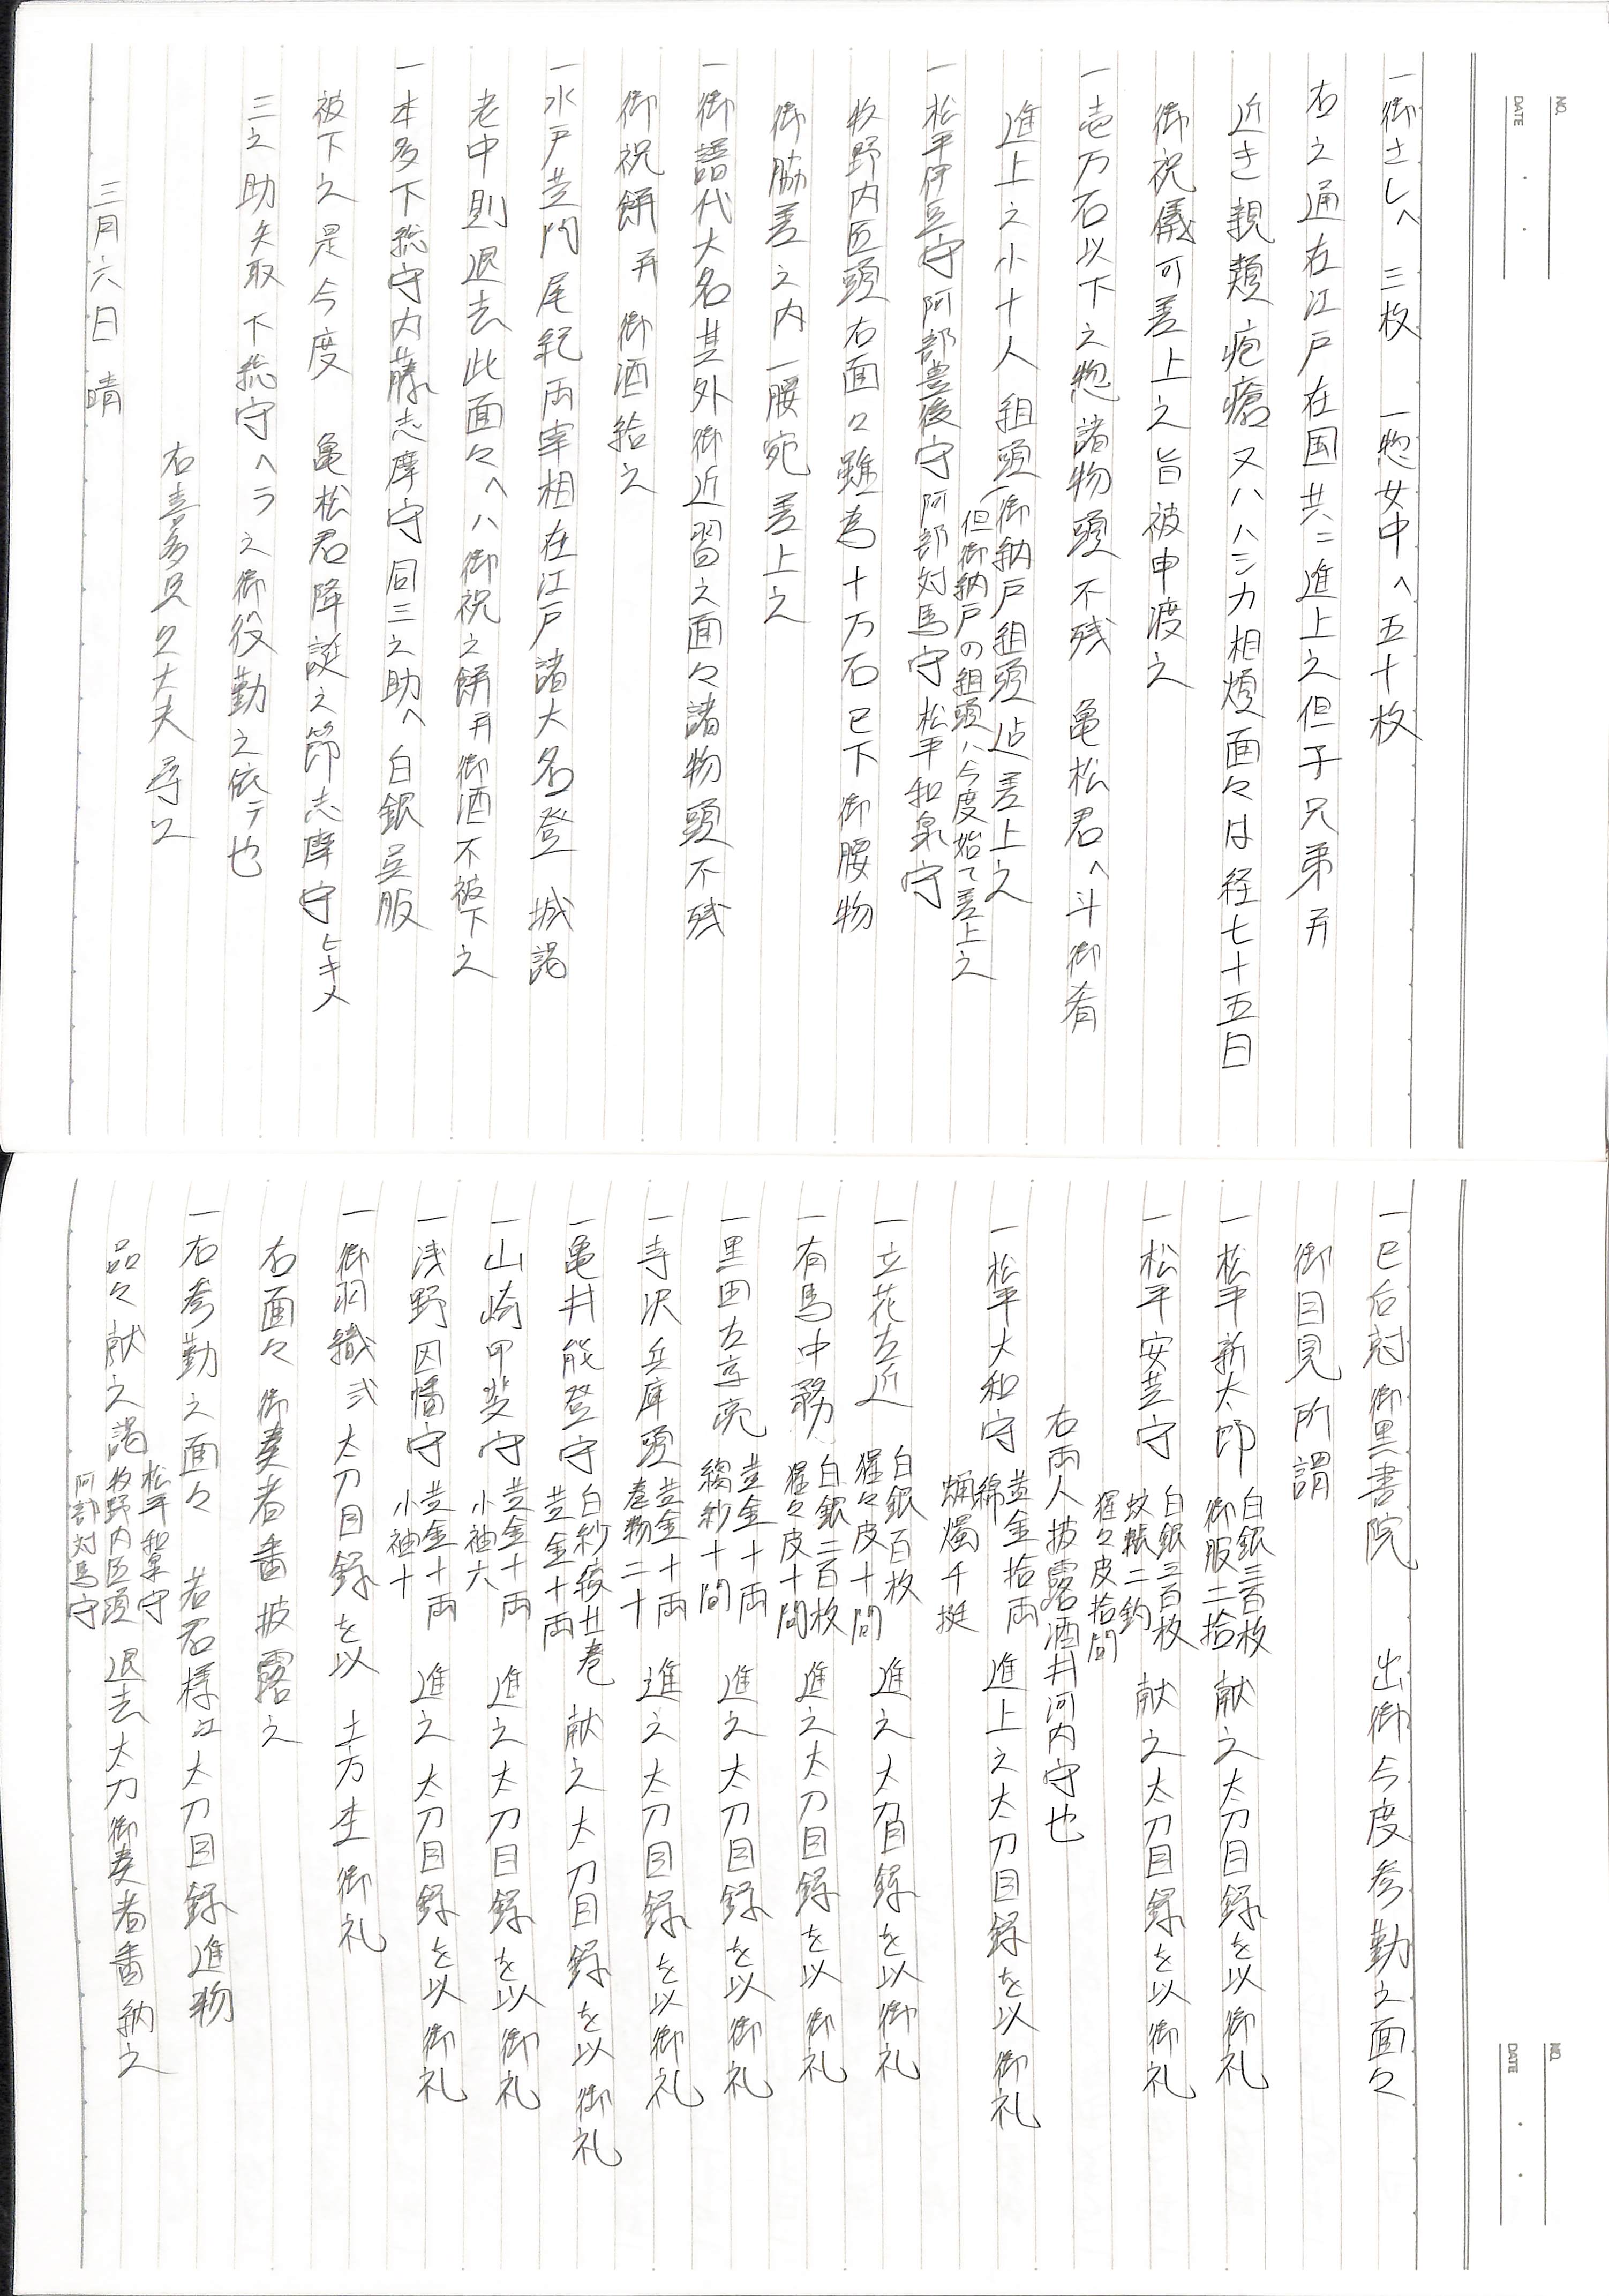 NO.
DATE
一御さしへ 三枚 一惣女中へ五十枚
右之通在江戸在国共ニ進上之但子兄弟幷
近き親類疱瘡又ハハシカ相煩面々は経七十五日
御祝儀可差上之旨被申渡之
一壱万石以下之惣諸物頭不残 亀松君へ斗御肴
進上之小十人組頭御納戸組頭迠差上之
(但御納戸の組頭ハ今度始て差上之
一松平伊豆守 阿部豊後守 阿部対馬守 松平和泉守
牧野内匠頭右面々雖為十万石已下御腰物
御脇差之内一腰宛差上之
一御譜代大名其外御近習之面々諸物頭不残
御祝餅幷御酒給之
一水戸黄門尾紀両宰相在江戸諸大名登 城謁
老中則退去此面々へハ御祝之餅幷御酒不被下之
一本多下総守内藤志摩守同三之助へ白銀呉服
被下之是今度 亀松君降誕之節志摩守ヒキメ
三之助矢取下総守ヘラ之御役勤之依テ也
右喜多見久大夫尋之
三月六日 晴
NO.
DATE
一巳后尅御黒書院 出御今度参勤之面々
御目見所謂
一松平新太郎 白銀三百枚 御服二拾 献之太刀目録を以御礼
一松平安芸守 白銀三百枚 蚊帳二釣 猩々皮拾間 献之太刀目録を以御礼
右両人披露酒井河内守也
一松平大和守 黄金拾両 綿 蠟燭千挺 進上之太刀目録を以御礼
一立花左近 白銀百枚 猩々皮十間 進之太刀目録を以御礼
一有馬中務 白銀二百枚 猩々皮十間 進之太刀目録を以御礼
一黒田右京亮 黄金十両 縐紗十間 進之太刀目録を以御礼
一寺沢兵庫頭 黄金十両 巻物二十 進之太刀目録を以御礼
一亀井能登守 白紗綾廿巻 黄金十両 献之太刀目録を以御礼
一山崎甲斐守 黄金十両 小袖六 進之太刀目録を以御礼
一浅野因幡守 黄金十両 小袖十 進之太刀目録を以御礼
一御羽織弐太刀目録を以 土方杢御礼
右面々御奏者番披露之
一右参勤之面々 若君様江太刀目録進物
品々献之謁 松平和泉守 牧野内匠頭 阿部対馬守 退去太刀御奏者番納之